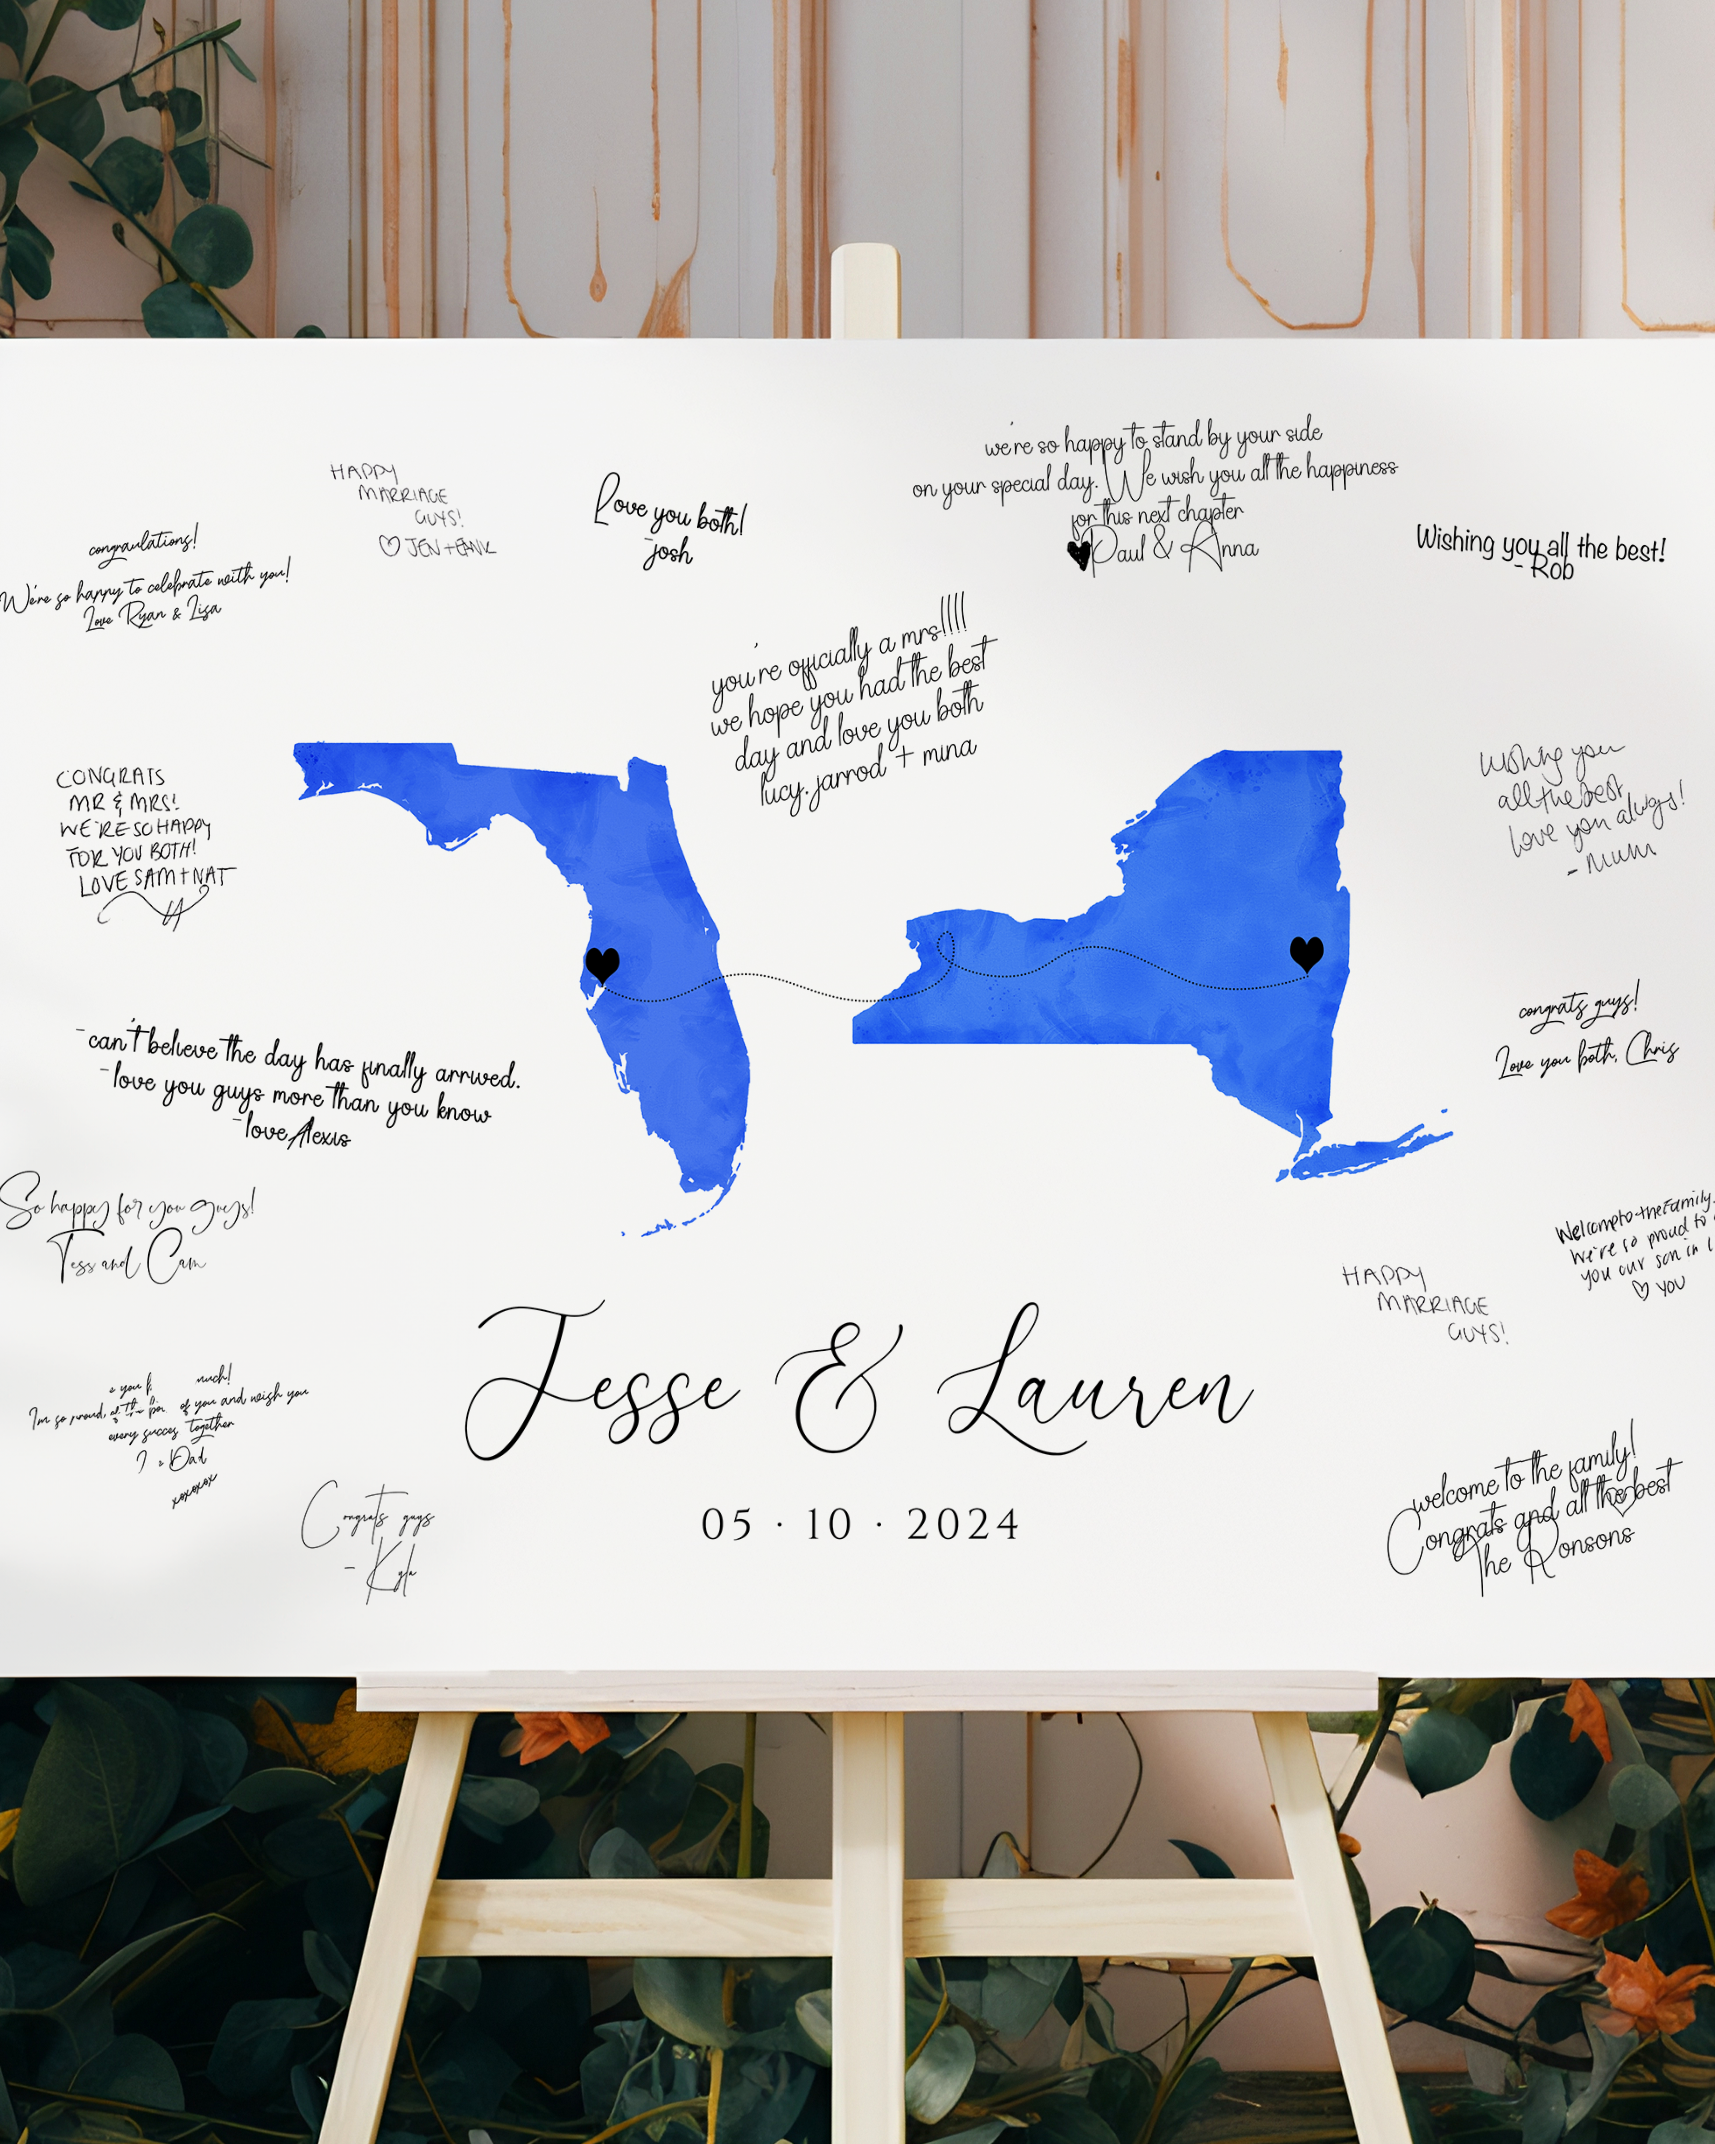 we're so happy to stand by your side
on your special day. We wish you all the happiness
for this next chapter
Paul & Anna
HAPPY
MARRIAGE
GUYS!
JEN +
Love you both!
-josh
congraulations!
We're so happy to celebrate with you!
Love Ryan & Lisa
Wishing you all the best!
- Rob
you're officially a mrs!!!!
we hope you had the best
day and love you both
lucy. jarrod + mina
CONGRATS
MR & MRS!
WE'RE SO HAPPY
FOR YOU BOTH!
LOVE SAM + NAT
wishing you
all the best
love you always!
- mum
congrats guys!
Love you both, Chris
-can't believe the day has finally arrived.
-love you guys more than you know
-love Alexis
So happy for you guys!
Tess and Cam
Welcome to the Family.
We're so proud to
you our son in
YOU
HAPPY
MARRIAGE
GUYS!
Jesse & Lauren
05 · 10 · 2024
you much!
I'm so proud of you and wish you
every succes together
Dad
xoxoxox
Congrats guys
- Kyla
welcome to the family!
Congrats and all the best
The Ronsons